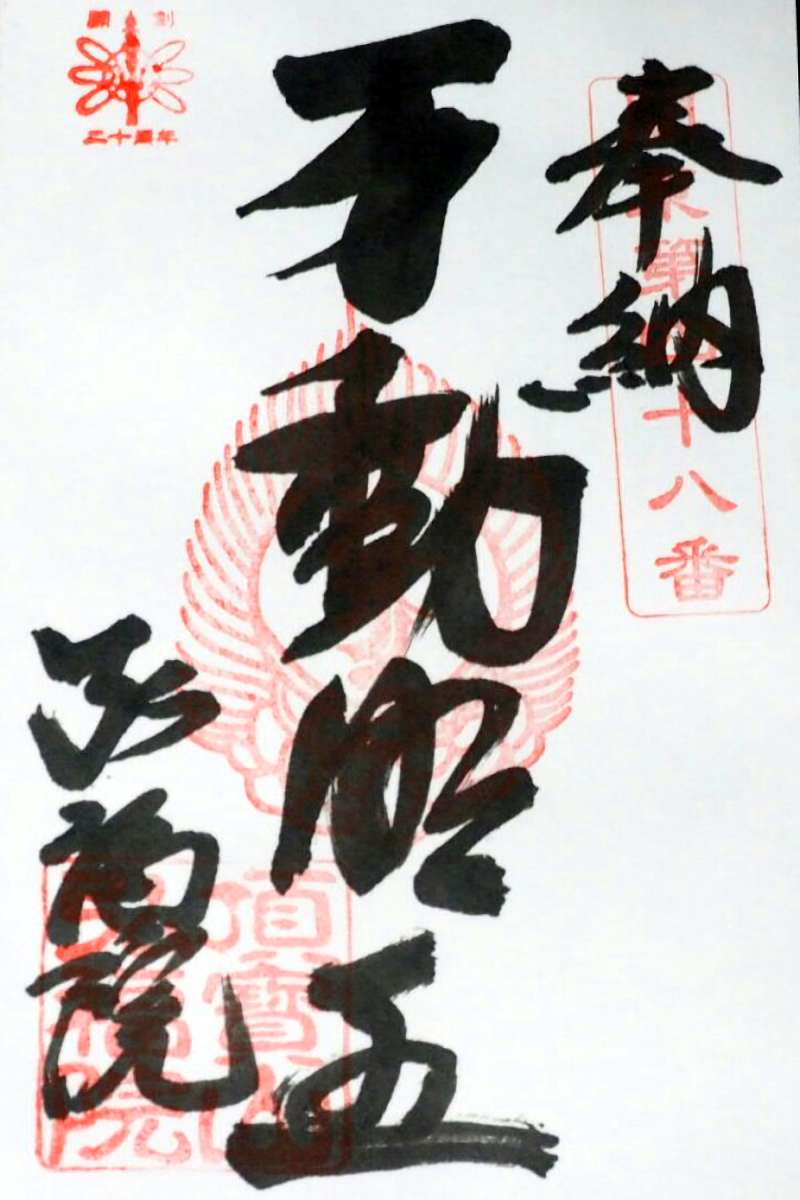 奉納
東第四十八番
不動明王
開創
二十周年
福院